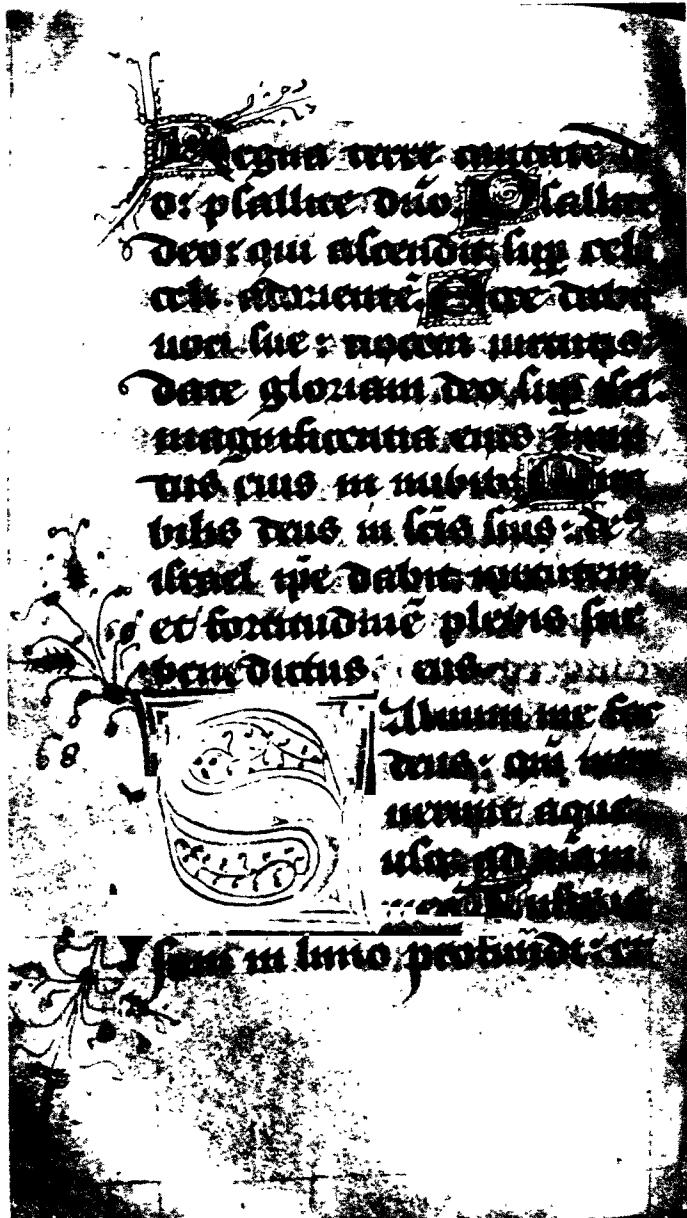 Regna terre cantate de
o: psallite dn̄o. Psallite
deo: qui ascendit sup celū
celi ad orientē. Ecce dabit
uoci sue: uocem uirtutis:
date gloriam deo sup isrl̄.
magnificentia eius ⁊ uir
tus eius in nubibus Mira
bilis deus in sc̄is suis: de9
israel ip̄e dabit uirtutem
et fortitudinē plebis sue
benedictus deus
Saluum me fac
deus: qm̄ intra
uerunt aque
usq; ad aīam
meā Infixus
sum in limo profundi: et